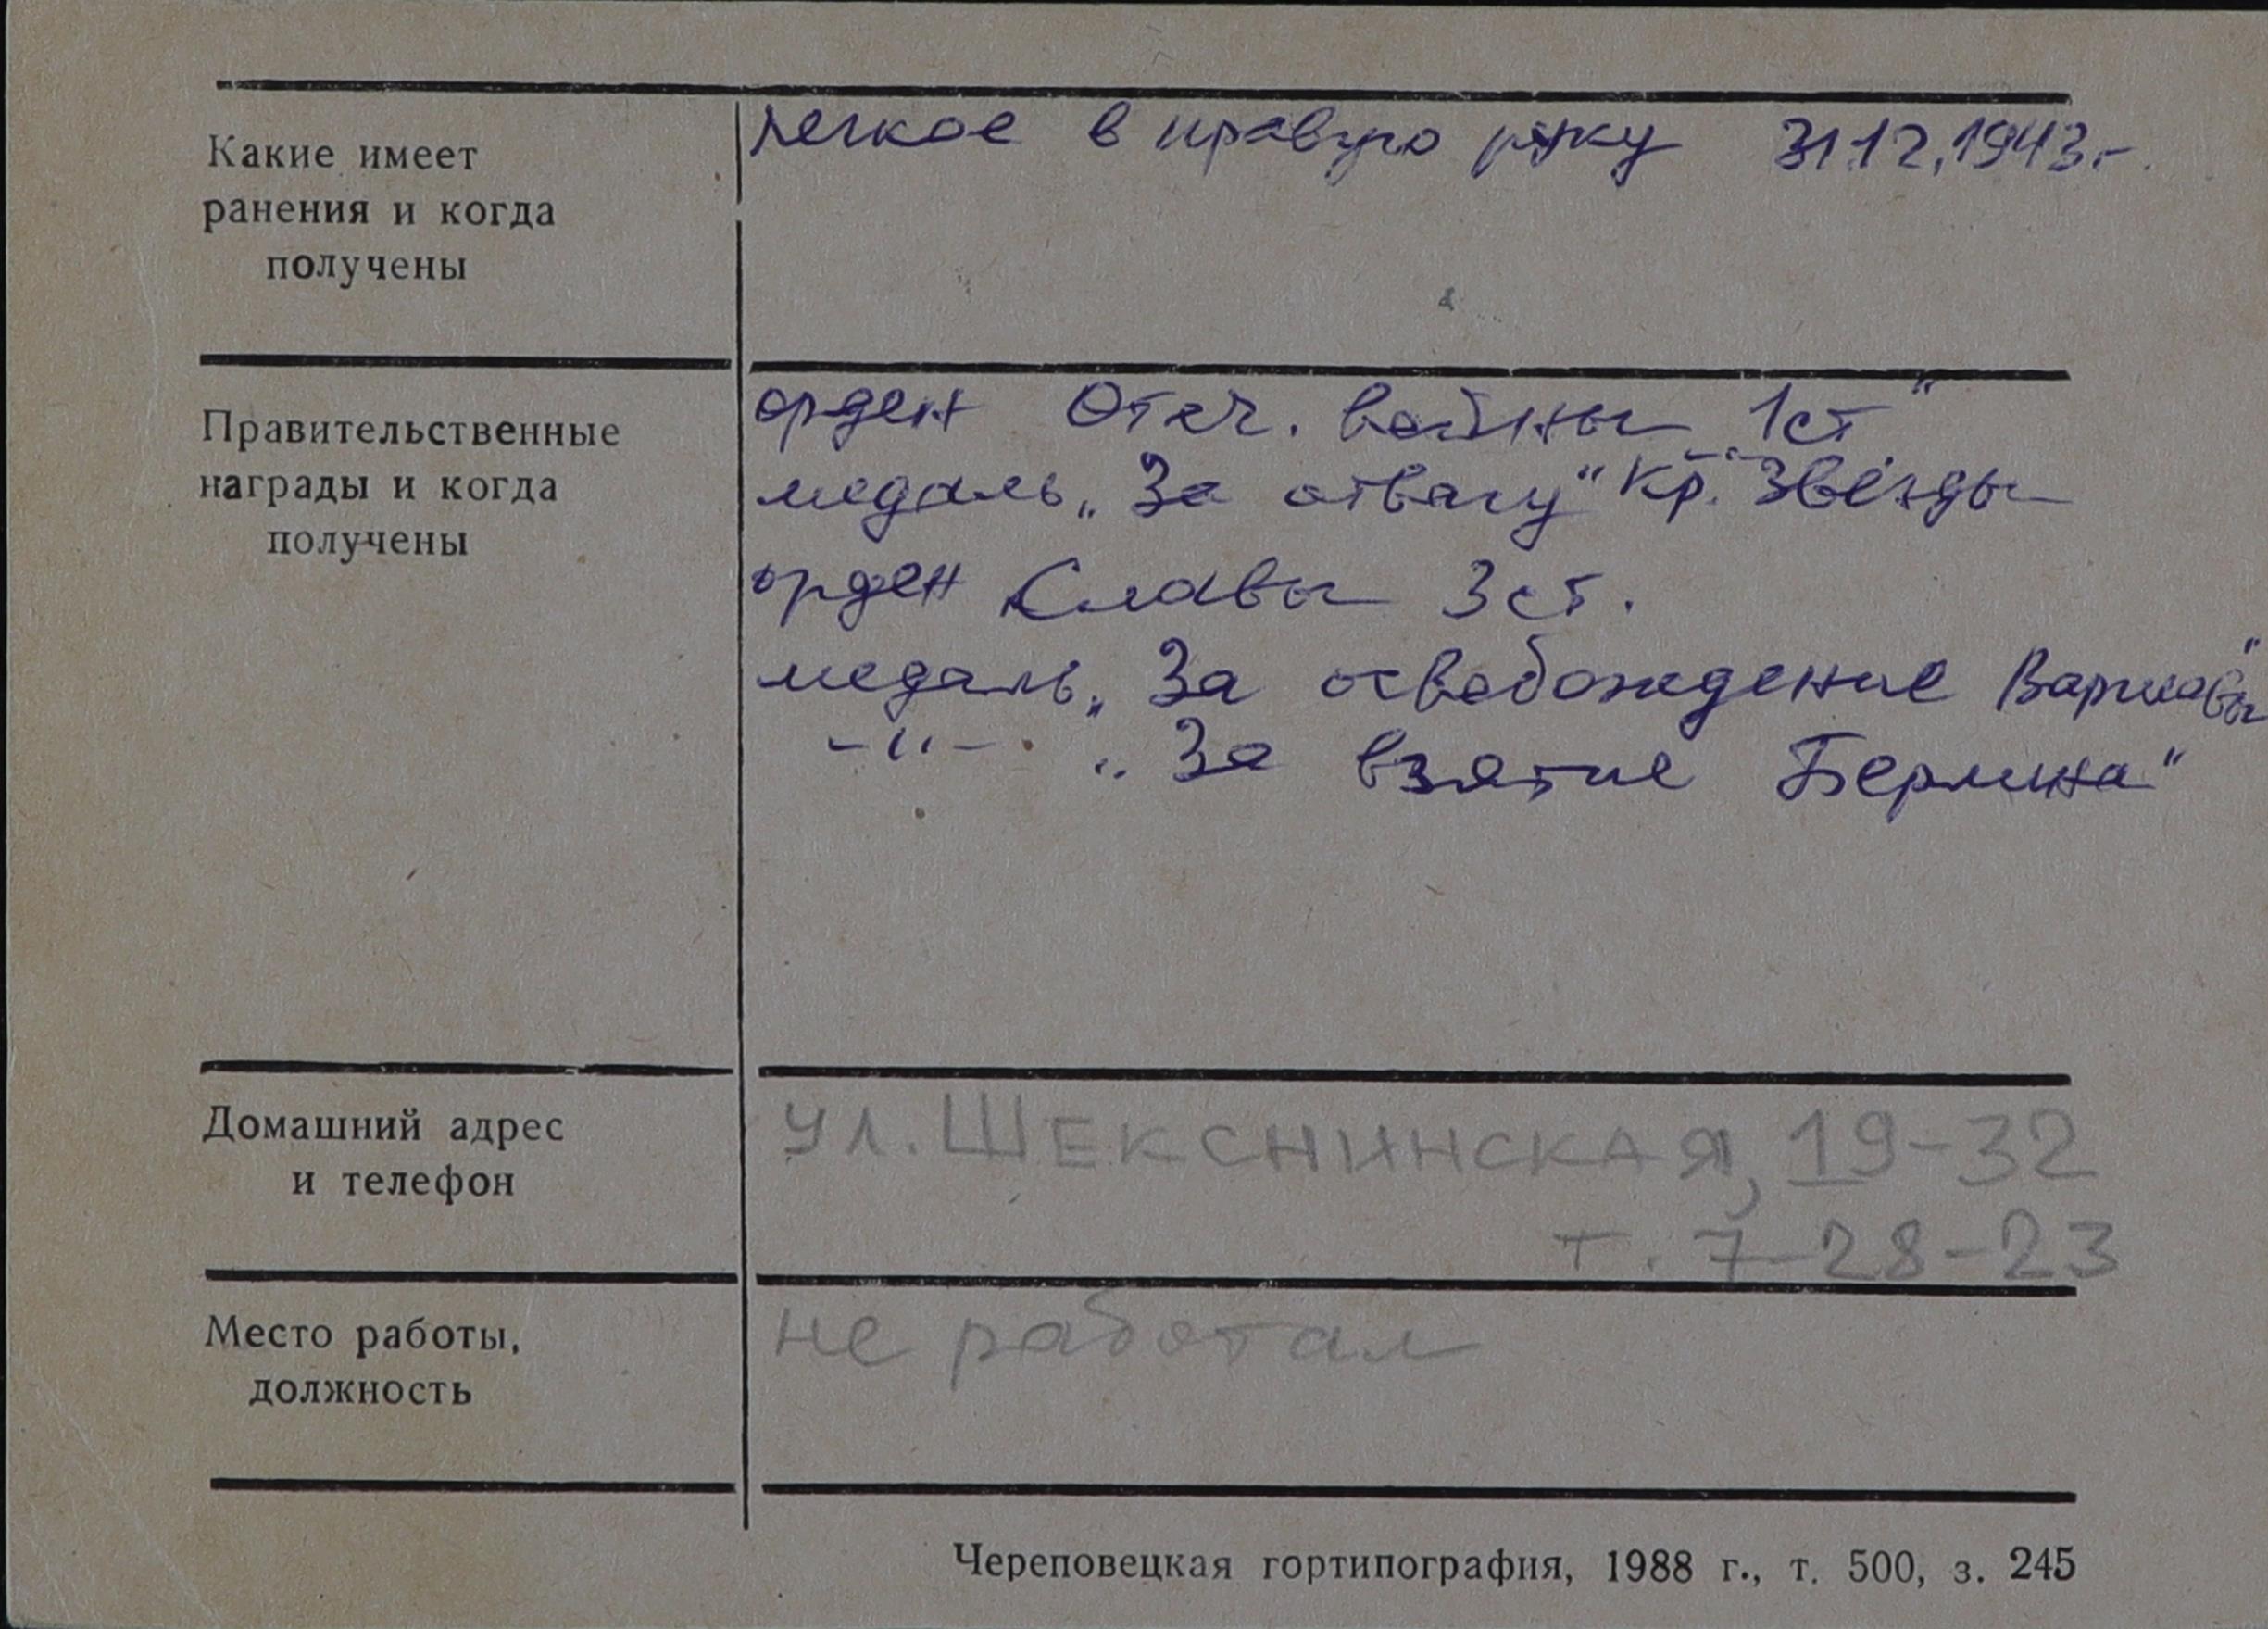 Какие имеет
ранения и когда
получены
легкое в правую руку 31.12.1943.-
Правительственные
награды и когда
получены
орден Отеч. войны 1ст"
медаль „За отвагу" Кр. Звёзды
орден Славы 3 ст.
медаль „За освобождение Варшавы"
-"- „За взятие Берлина"
Домашний адрес
и телефон
ул. ШЕКСНИНСКАЯ, 19-32
т. 7-28-23
Место работы,
должность
не работал
Череповецкая гортипография, 1988 г., т. 500, з. 245